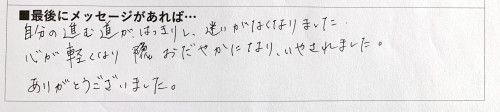 ■最後にメッセージがあれば…
自分の進む道がはっきりし、迷いがなくなりました。
心が軽くなり おだやかになり、いやされました。
ありがとうございました。